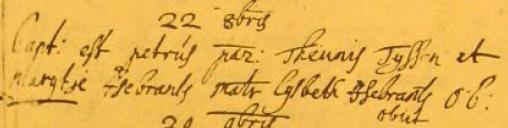 22 8bris
Capt: est petrus par: Theunis Tyssen et
marytie Ysebrants matr Lysbeth Ysebrants o.b:
obiit
20 9bris